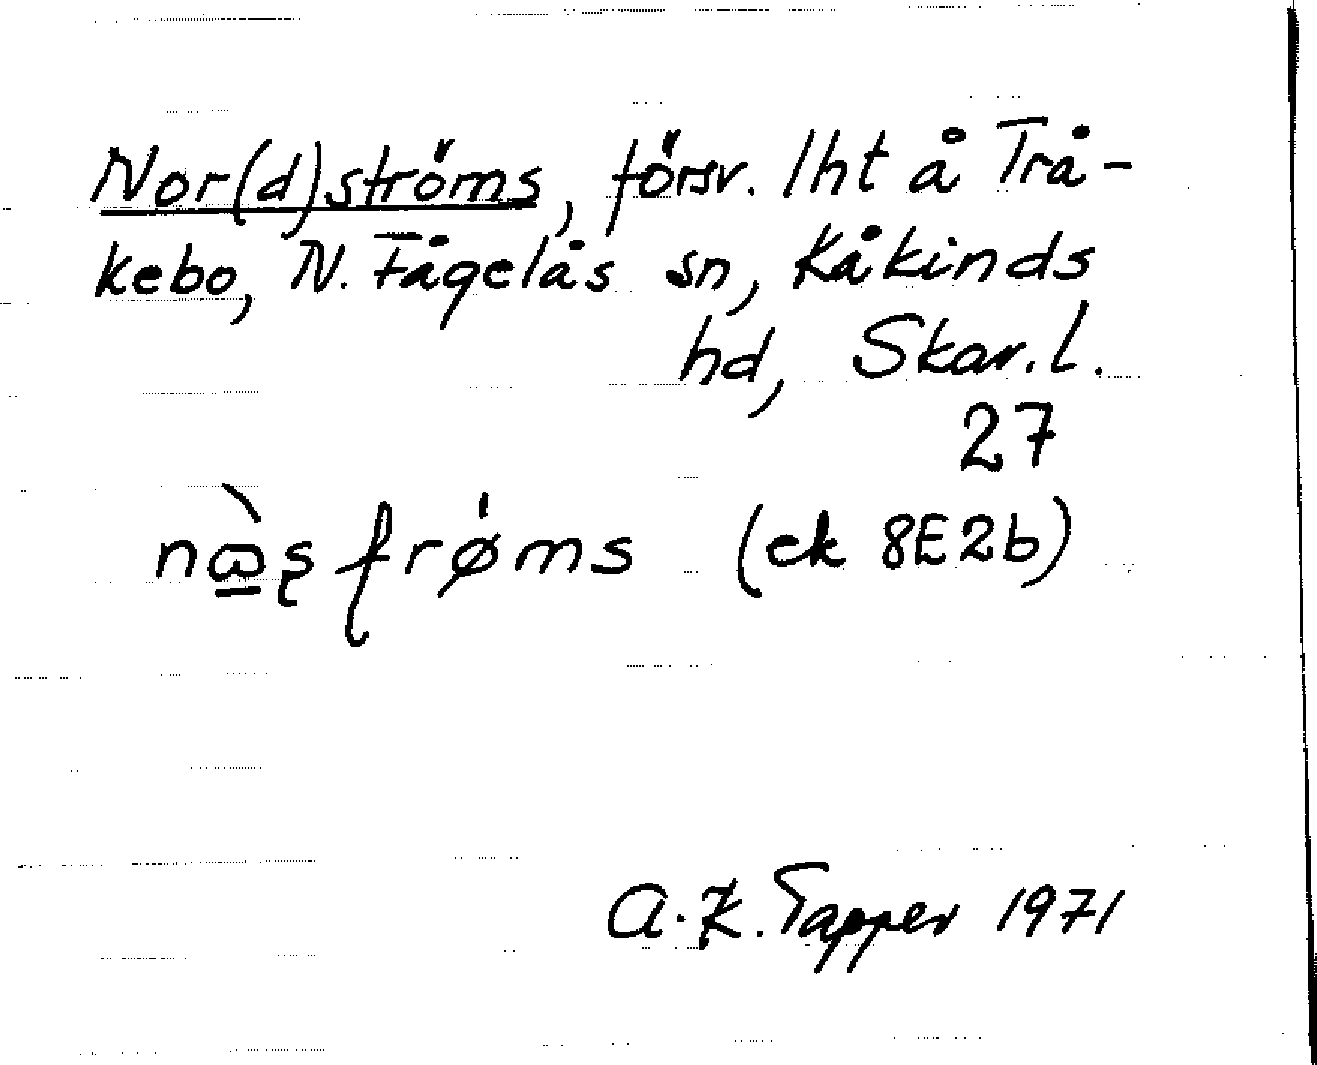 Nor(d)ströms, försv. lht å Trå-
kebo, N. Fågelås sn, Kåkinds
hd, Skar.l.
27
(ek 8E2b)
A.K. Tapper 1971